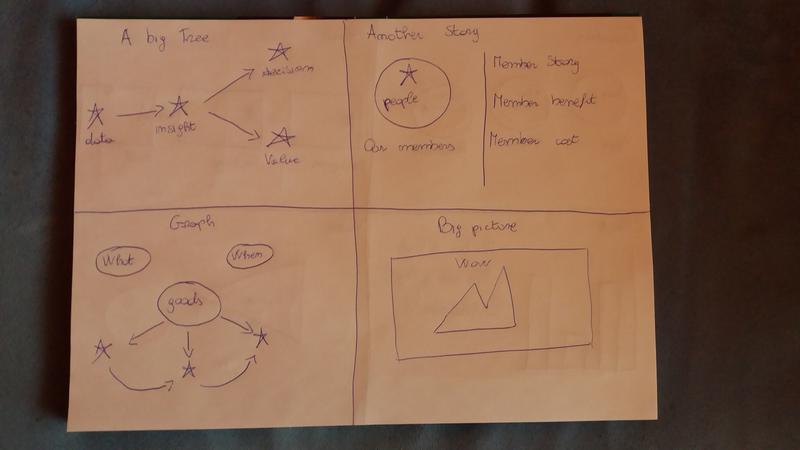 A big Tree
data
insight
decision
Value
Another Story
people
Our members
Member Story
Member benefit
Member cost
Graph
What
When
goods
Big picture
Wow